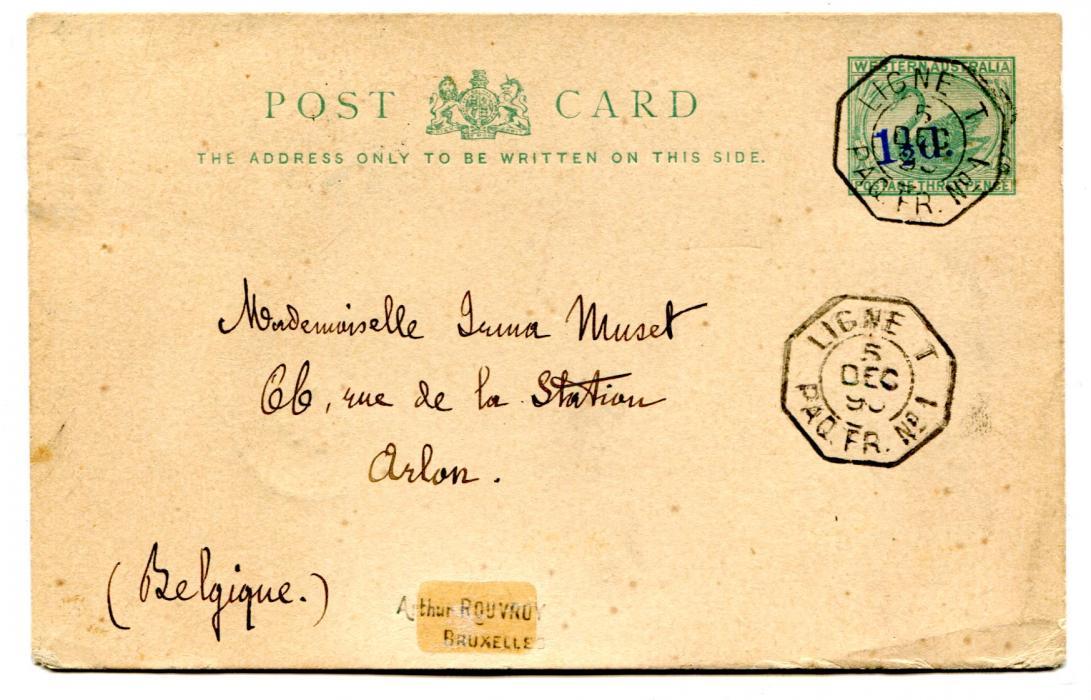 POST CARD
THE ADDRESS ONLY TO BE WRITTEN ON THIS SIDE.
WESTERN AUSTRALIA
1½d.
POSTAGE THREE PENCE
LIGNE T
5
DEC
90
PAQ. FR. Nº 1
Mademoiselle Irma Muset
66, rue de la Station
Arlon.
(Belgique.)
LIGNE T
5
DEC
90
PAQ. FR. Nº 1
Arthur ROUVROY
BRUXELLES